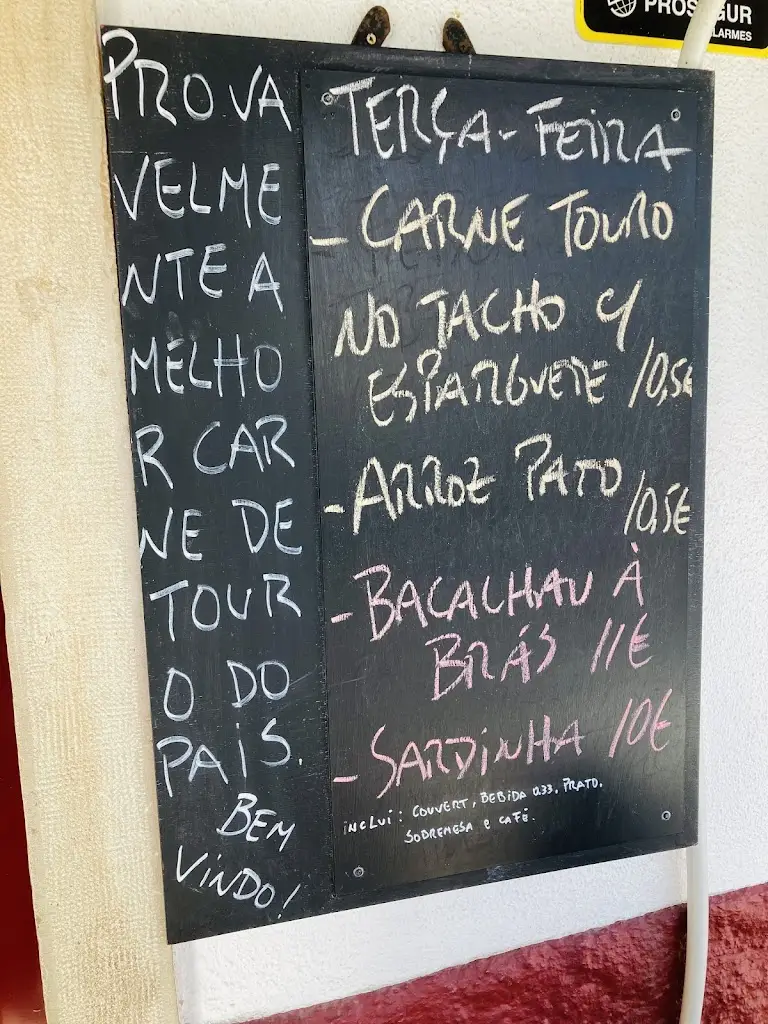 PROSEGUR
ALARMES
PROVA
VELME
NTE A
MELHO
R CAR
NE DE
TOUR
O DO
PAÍS.
BEM
VINDO!
TERÇA-FEIRA
- CARNE TOURO
NO TACHO C/
ESPARGUETE 10,5€
- ARROZ PATO
10,5€
- BACALHAU À
BRÁS 11€
- SARDINHA 10€
INCLUI: COUVERT, BEBIDA 0.33, PRATO,
SOBREMESA E CAFÉ.